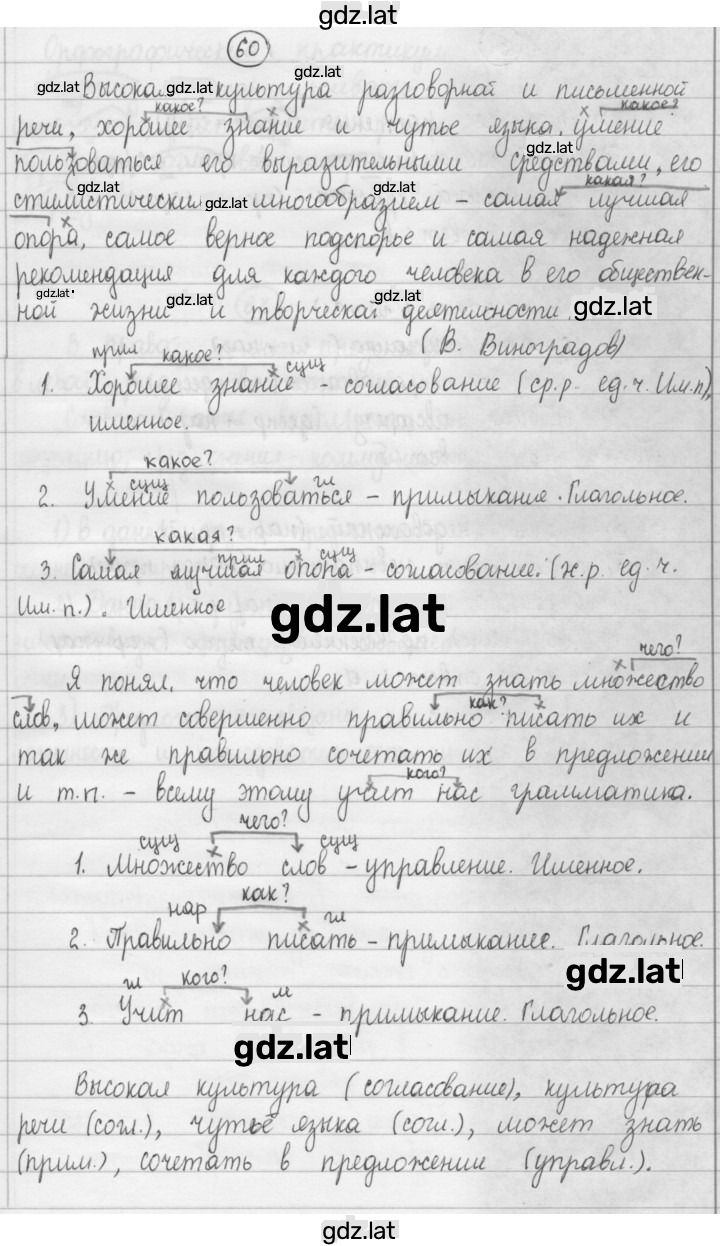 gdz.lat
60
gdz.lat Высокая gdz.lat культура разговорной и gdz.lat письменной
какое? какое?
речи, хорошее знание и чутье языка, умение
gdz.lat gdz.lat gdz.lat
пользоваться его выразительными средствами, его
gdz.lat gdz.lat какая?
стилистическим gdz.lat многообразием – самая лучшая
опора, самое верное подспорье и самая надежная
рекомендация для каждого человека в его обществен-
gdz.lat gdz.lat gdz.lat
ной жизни и творческой деятельности.
(В. Виноградов)
прил какое? сущ
1. Хорошее знание – согласование (ср.р. ед.ч. Им.п),
именное.
какое?
сущ гл
2. Умение пользоваться – примыкание. Глагольное.
какая?
прил сущ
3. Самая лучшая опора – согласование. (ж.р. ед.ч.
Им.п.). Именное
gdz.lat
чего?
Я понял, что человек может знать множество
как?
слов, может совершенно правильно писать их и
так же правильно сочетать их в предложении
кого?
и т.п. – всему этому учит нас грамматика.
чего?
сущ сущ
1. Множество слов – управление. Именное.
как?
нар гл
2. Правильно писать – примыкание. Глагольное.
gdz.lat
гл кого? м
3. Учит нас – примыкание. Глагольное.
gdz.lat
Высокая культура (согласование), культура
речи (согл.), чутьё языка (согл.), может знать
(прим.), сочетать в предложении (управл.).
gdz.lat